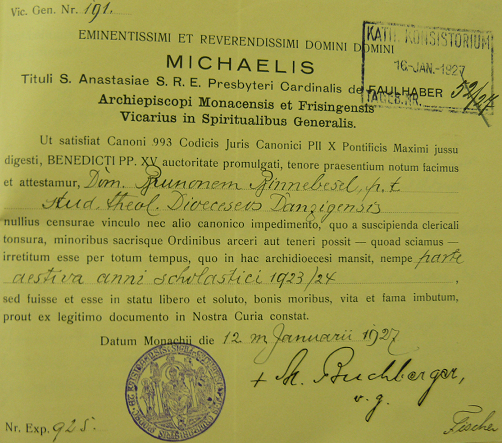 Vic. Gen. Nr. 191.
KATH. KONSISTORIUM
16-JAN.-1927
TAGEB. NR. 52/27
EMINENTISSIMI ET REVERENDISSIMI DOMINI DOMINI
MICHAELIS
Tituli S. Anastasiae S. R. E. Presbyteri Cardinalis de FAULHABER
Archiepiscopi Monacensis et Frisingensis
Vicarius in Spiritualibus Generalis.
Ut satisfiat Canoni 993 Codicis Juris Canonici PII X Pontificis Maximi jussu
digesti, BENEDICTI PP. XV auctoritate promulgati, tenore praesentium notum facimus
et attestamur, Dom. Brunonem Binnebesel, p. t.
stud. theol. Dioeceseos Danzigensis
nullius censurae vinculo nec alio canonico impedimento, quo a suscipienda clericali
tonsura, minoribus sacrisque Ordinibus arceri aut teneri possit — quoad sciamus —
irretitum esse per totum tempus, quo in hac archidioecesi mansit, nempe parte
aestiva anni scholastici 1923/24,
sed fuisse et esse in statu libero et soluto, bonis moribus, vita et fama imbutum,
prout ex legitimo documento in Nostra Curia constat.
Datum Monachii die 12 m Januarii 1927
+ M. Buchberger,
v. g.
Nr. Exp. 925.
Fischer